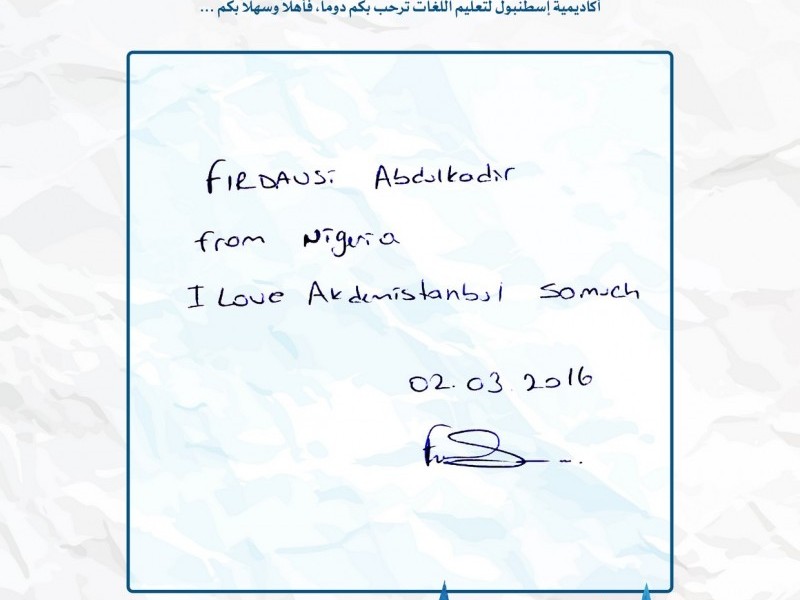 أكاديمية إسطنبول لتعليم اللغات ترحب بكم دوما، فأهلا وسهلا بكم ...
FIRDAUSi Abdulkadir
from Nigeria
I Love Akdemistanbul somuch
02.03.2016